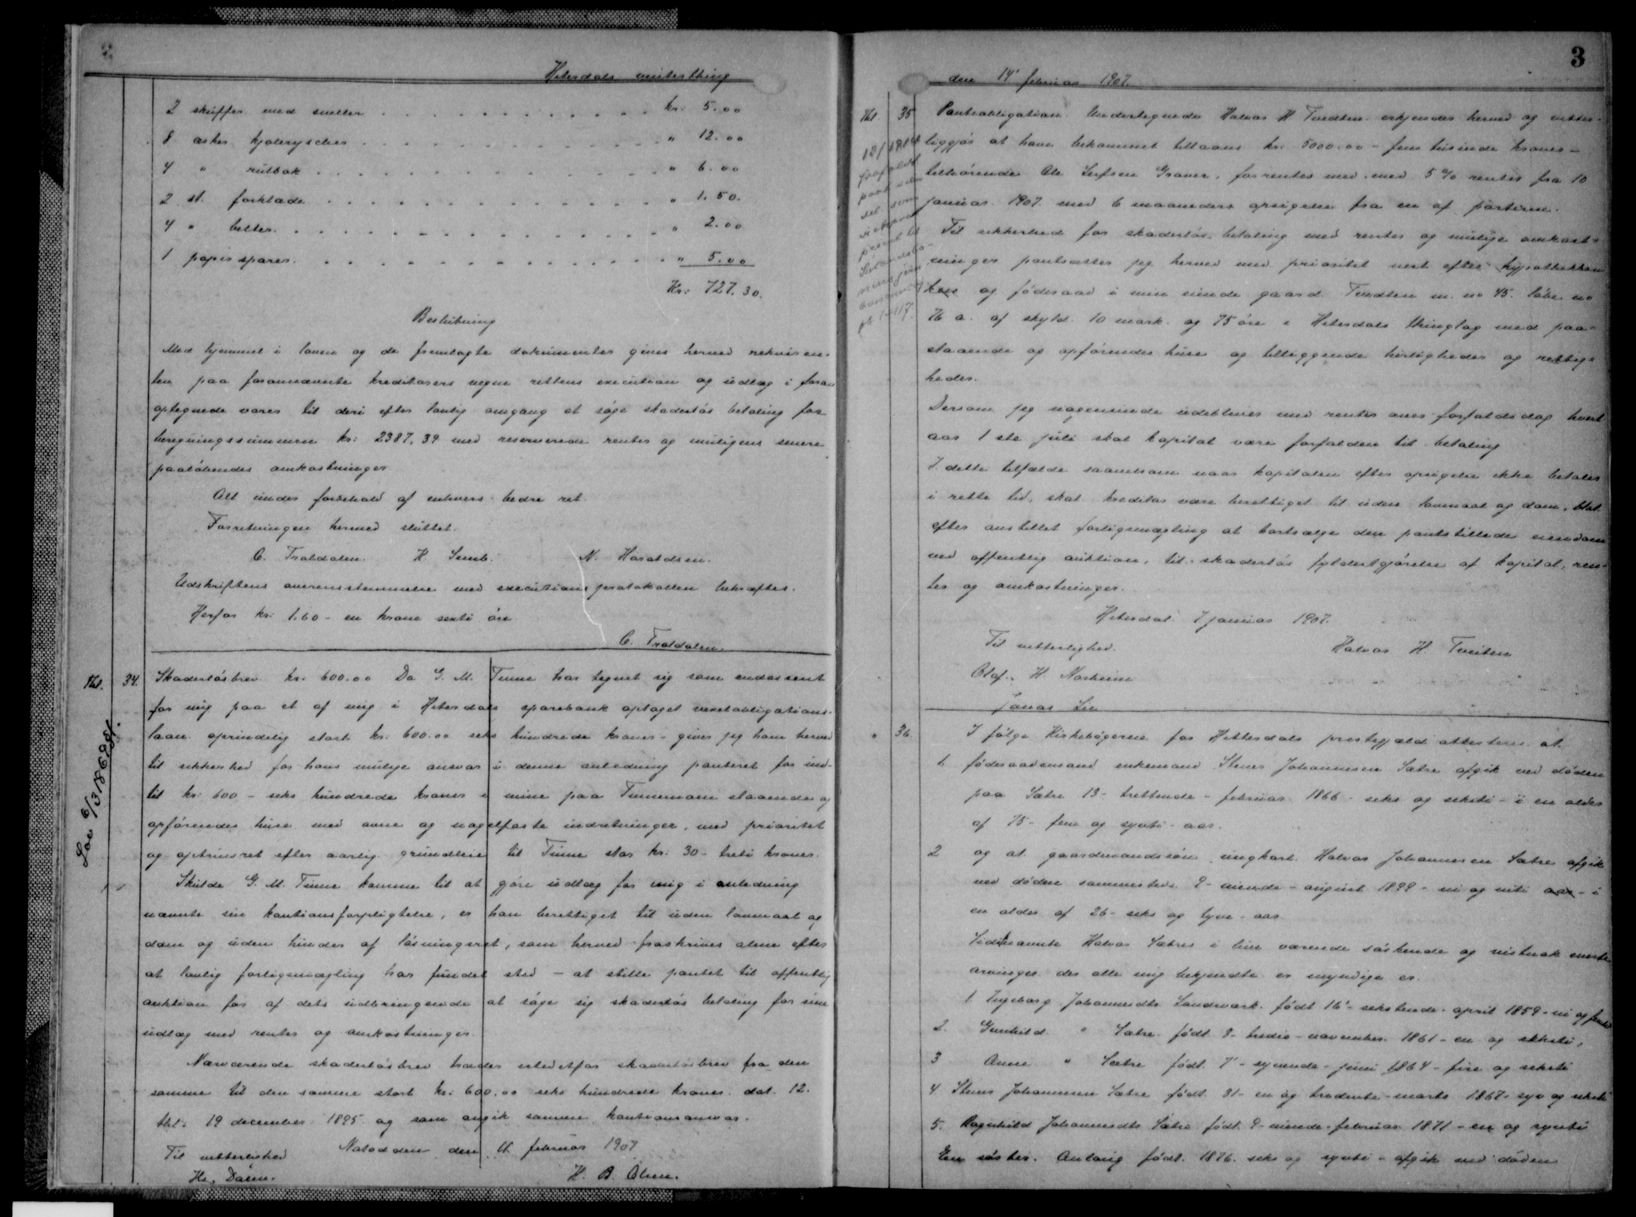 2
Hitterdals mintesthing
2 skuffer med sneller kr. 5.00
8 æsker kjolerysches " 12.00
4 " " 6.00
2 st. forklæde " 1.50.
4 " belter " 2.00
1 papirsparer " 5.00
Kr. 727.30.
Beslutning
Med hjemmel i loven og de fremlagte dokumenter gives herved rekvirenten
paa forannævnte kreditorers vegne rettens execution og udlæg i foran
optegnede varer til deri efter lovlig omgang at søge skadesløs betaling for
beregningssummen kr: 2387.34 med reserverede renter og muligens senere
paaløbende omkostninger
Alt under forbehold af enhvers bedre ret.
Forretningen hermed sluttet.
C. Traldalen. H. Semb. N. Haraldsen.
Udskriftens overensstemmelse med executionsprotokollen bekræftes.
Herfor kr. 1.60 - en krone sexti øre
C. Traldalen.
34. Skadesløsbrev kr. 600.00 Da G. M. Tinne har tegnet sig som endossent
for mig paa et af mig i Hitterdals sparebank optaget vexelobligations-
laan oprindelig stort kr. 600.00 seks hundrede kroner - giver jeg ham herved
til sikkerhed for hans mulige ansvar i denne anledning panteret for ind-
til kr. 600 - seks hundrede kroner i mine paa Tinnemoen staaende og
opførendes huse med ovne og nagelfaste indretninger, med prioritet
og optrinsret efter aarlig grundleie til Tinne stor kr. 30 - treti kroner.
Skulde G. M. Tinne komme til at gjøre udlæg for mig i anledning
nævnte sin kautionsforpligtelse, er han berettiget til uden lovmaal og
dom og uden hinder af løsningsret, som herved fraskrives alene efter
at lovlig forligsmægling har fundet sted - at stille pantet til offentlig
auktion for af dets udbringende at søge sig skadesløs betaling for sine
udlæg med renter og omkostninger.
Nærværende skadesløsbrev træder istedetfor skadesløsbrev fra den
samme til den samme stort kr. 600.00 seks hundrede kroner dat. 12.
thl. 19 december 1895 og som angik samme kautionsansvar.
Til vitterlighed Notodden den 11 februar 1907
H. B. Olsen.
3
den 14' februar 1907.
35 Panteobligation Undertegnede Halvor H Tveiten erkjender herved og vitter-
liggjør at have bekommet tillaans kr. 5000.00 - fem tusinde kroner -
tilhørende Ole Graver, forrentes med med 5 % renter fra 10
januar 1907 med 6 maaneders opsigelse fra en af parterne.
Til sikkerhed for skadesløs betaling med renter og mulige omkost-
ninger pantsætter jeg herved med prioritet næst efter hypothekbanken
og føderaad i min eiende gaard Tveiten m. no 45. løbe no
76 a. af skyld 10 mark og 75 øre i Hitterdals thinglag med paa-
staaende og opførendes huse og tilliggende herligheder og rettig-
heder.
Dersom jeg nogensinde udebliver med renter over forfaldsdag hvert
aar 1ste juli skal kapital være forfalden til betaling
I dette tilfælde saavelsom naar kapitalen efter opsigelse ikke betales
i rette tid, skal kreditor være berettiget til uden lovmaal og dom, blot
efter anstillet forligsmægling at bortsælge den pantstillede eiendom
ved offentlig auktion, til skadesløs fyldestgjørelse af kapital, ren-
ter og omkostninger.
Hiterdal 7 januar 1907.
Til vitterlighed. Halvor H Tveiten
Olof. H Norheim
Jonas Lie
36. I følge Kirkebøgerne for Hitterdals prestegjæld attesteres at
1. føderaadsmand enkemand Stener Johannesen Sætre afgik ved døden
paa Sætre 13 - trettende - februar 1866 - seks og seksti - i en alder
af 75 - fem og sytti - aar.
2 og at gaardmandssøn ungkarl Halvor Johannesen Sætre afgik
ved døden sammesteds 9 - niende - august 1899 - ni og nitti aar - i
en alder af 26 - seks og tyve - aar
Sidstnævnte Halvor Sætres i live værende søskende og vistnok eneste
arvinger der alle mig bekjendte er myndige er.
1 Ingeborg Johannesdtr Landsverk født 16' - sekstende - april 1859 - ni og femti
2. Gunhild " Sætre født 3 - tredie - november 1861 - en og seksti,
3 Anne " Sætre født 7' - syvende - juni 1864 - fire og seksti
4 Stener Johannesen Sætre født 31 - en og tredevte - marts 1867 - syv og seksti
5. Ragnhild Johannesdtr Sætre født 9 - niende - februar 1871 - en og sytti
En søster. Anlaug født. 1876. seks og sytti - afgik ved døden